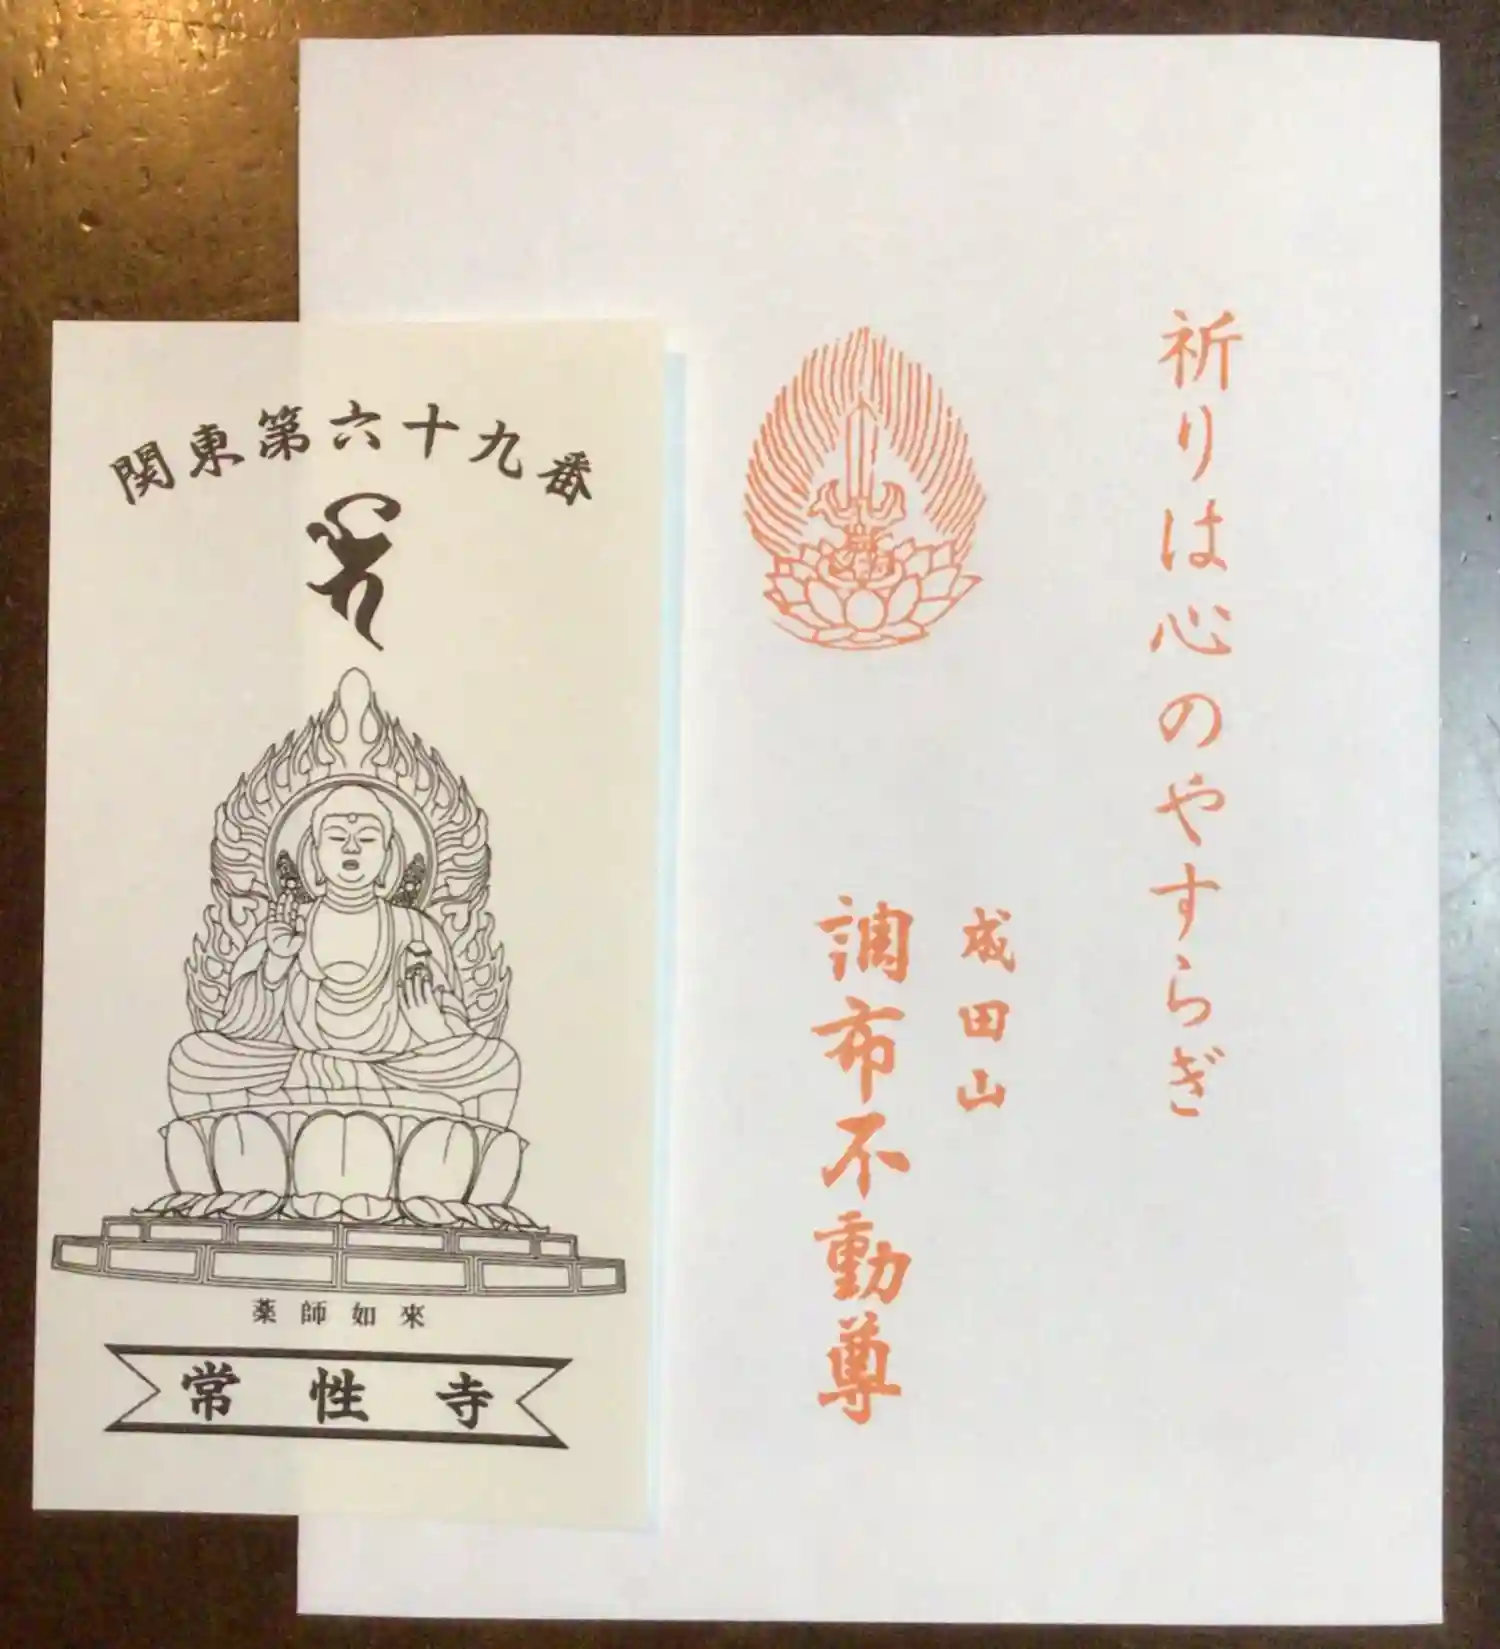 関東第六十九番
薬師如來
常性寺
祈りは心のやすらぎ
成田山
調布不動尊